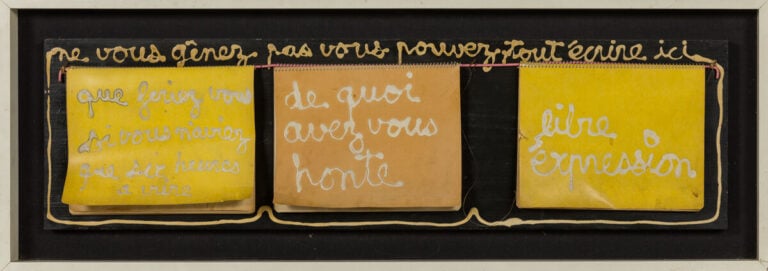 ne vous gênez pas vous pouvez tout écrire ici
que feriez vous
si vous n'aviez
que six heures
a vivre
de quoi
avez vous
honte
libre
expression